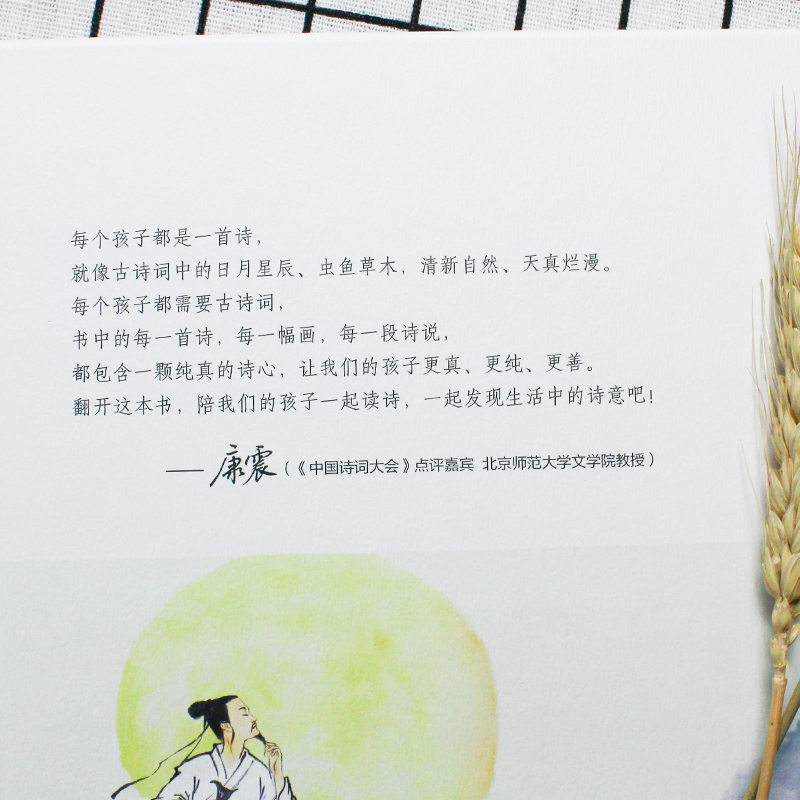 每个孩子都是一首诗，
就像古诗词中的日月星辰、虫鱼草木，清新自然、天真烂漫。
每个孩子都需要古诗词，
书中的每一首诗，每一幅画，每一段诗说，
都包含一颗纯真的诗心，让我们的孩子更真、更纯、更善。
翻开这本书，陪我们的孩子一起读诗，一起发现生活中的诗意吧！
——康震（《中国诗词大会》点评嘉宾 北京师范大学文学院教授）